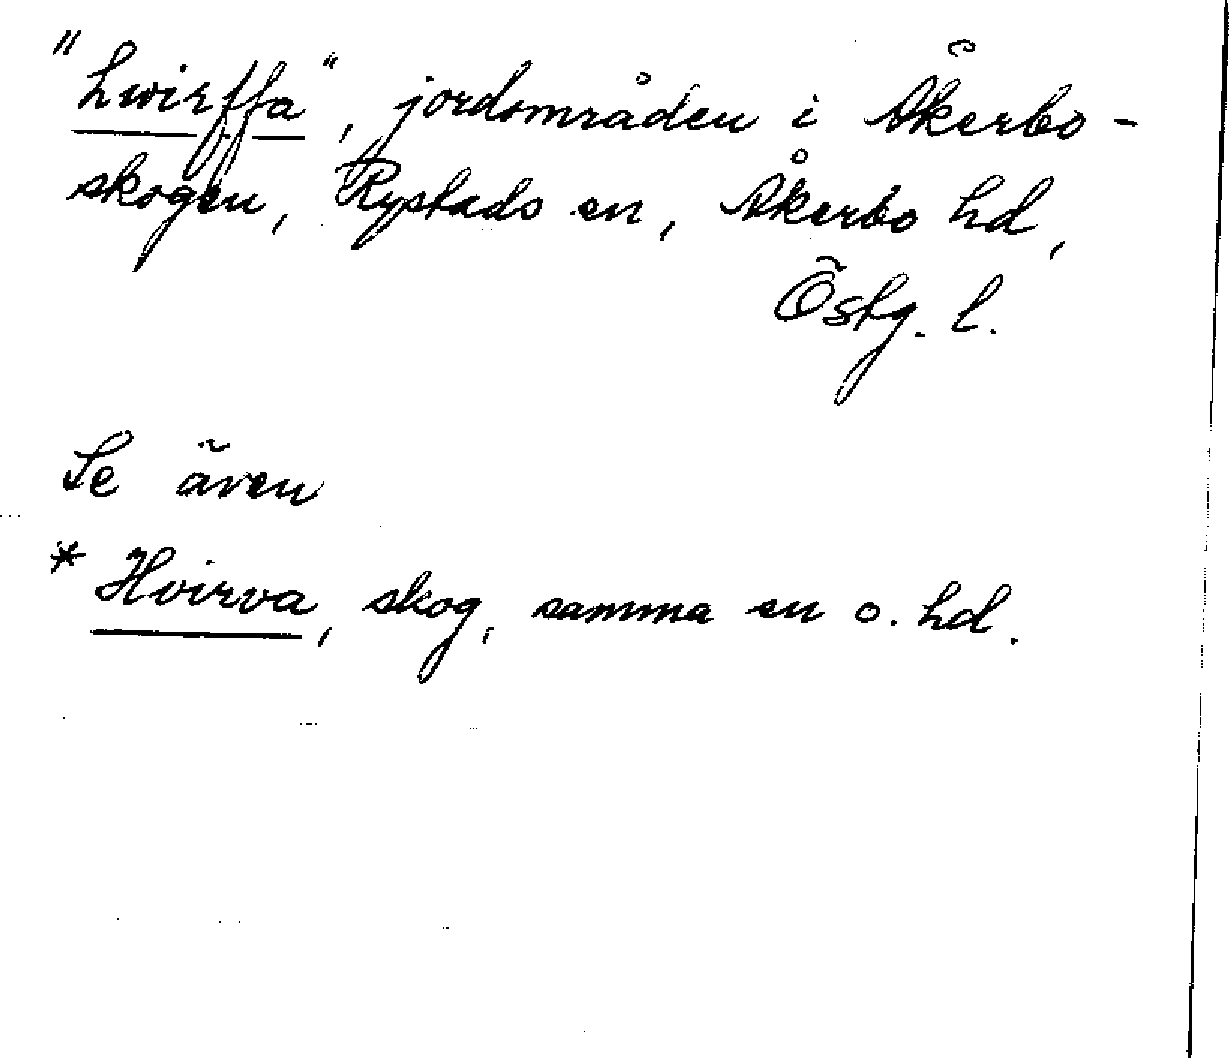 "hwirffa", jordområden i Åkerbo-
skogen, Rystads sn, Åkerbo hd,
Östg. l.
Se även
* Hvirva, skog, samma sn o. hd.